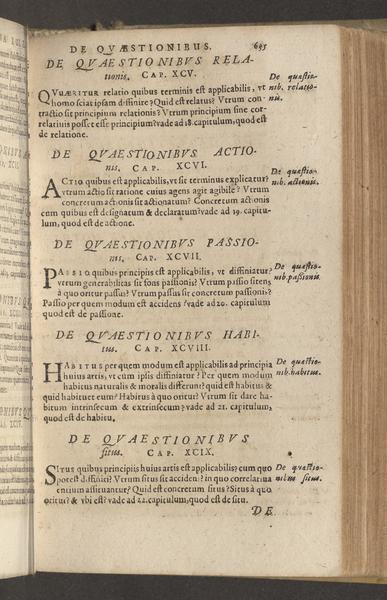 DE QVÆSTIONIBVS. 695
DE QVAESTIONIBVS RELA-
tionis. CAP. XCV.
QVÆRITUR relatio quibus terminis est applicabilis, vt
homo sciat ipsam diffinire? Quid est relatus? Vtrum con-
tractio sit principium relationis? Vtrum principium sine cor-
relatiuis posset esse principium? vade ad 18. capitulum, quod est
de relatione.
De quæstio-
nib. relatio-
nis.
DE QVAESTIONIBVS ACTIO-
nis. CAP. XCVI.
ACTIO quibus est applicabilis, vt sic terminus explicatur?
vtrum actio sit ratione cuius agens agit agibile? Vtrum
concretum actionis sit actionatum? Concretum actionis
cum quibus est designatum & declaratum? vade ad 19. capitu-
lum, quod est de actione.
De quæstio-
nib. actionis.
DE QVAESTIONIBVS PASSIO-
nis. CAP. XCVII.
PASSIO quibus principiis est applicabilis, vt diffiniatur?
vtrum generabilitas sit fons passionis? Vtrum passio sitens
à quo oritur passus? Vtrum passus sit concretum passionis?
Passio per quem modum est accidens? vade ad 20. capitulum
quod est de passione.
De quæstio-
nib. passionis.
DE QVAESTIONIBVS HABI-
tus. CAP. XCVIII.
HABITUS per quem modum est applicabilis ad principia
huius artis, vt cum ipsis diffiniatur? Per quem modum
habitus naturalis & moralis differunt? quid est habitus &
quid habituet eum? Habitus à quo oritur? Vtrum sit dare ha-
bitum intrinsecum & extrinsecum? vade ad 21. capitulum,
quod est de habitu.
De quæstio-
nib. habitus.
DE QVAESTIONIBVS
situs. CAP. XCIX.
SITUS quibus principiis huius artis est applicabilis; cum quo
potest diffiniri? Vtrum situs sit accidens? in quo correlatiua
entium assituantur? Quid est concretum situs? Situs à quo
oritur? & vbi est? vade ad 22. capitulum, quod est de situ.
De quæstio-
situs.
DE